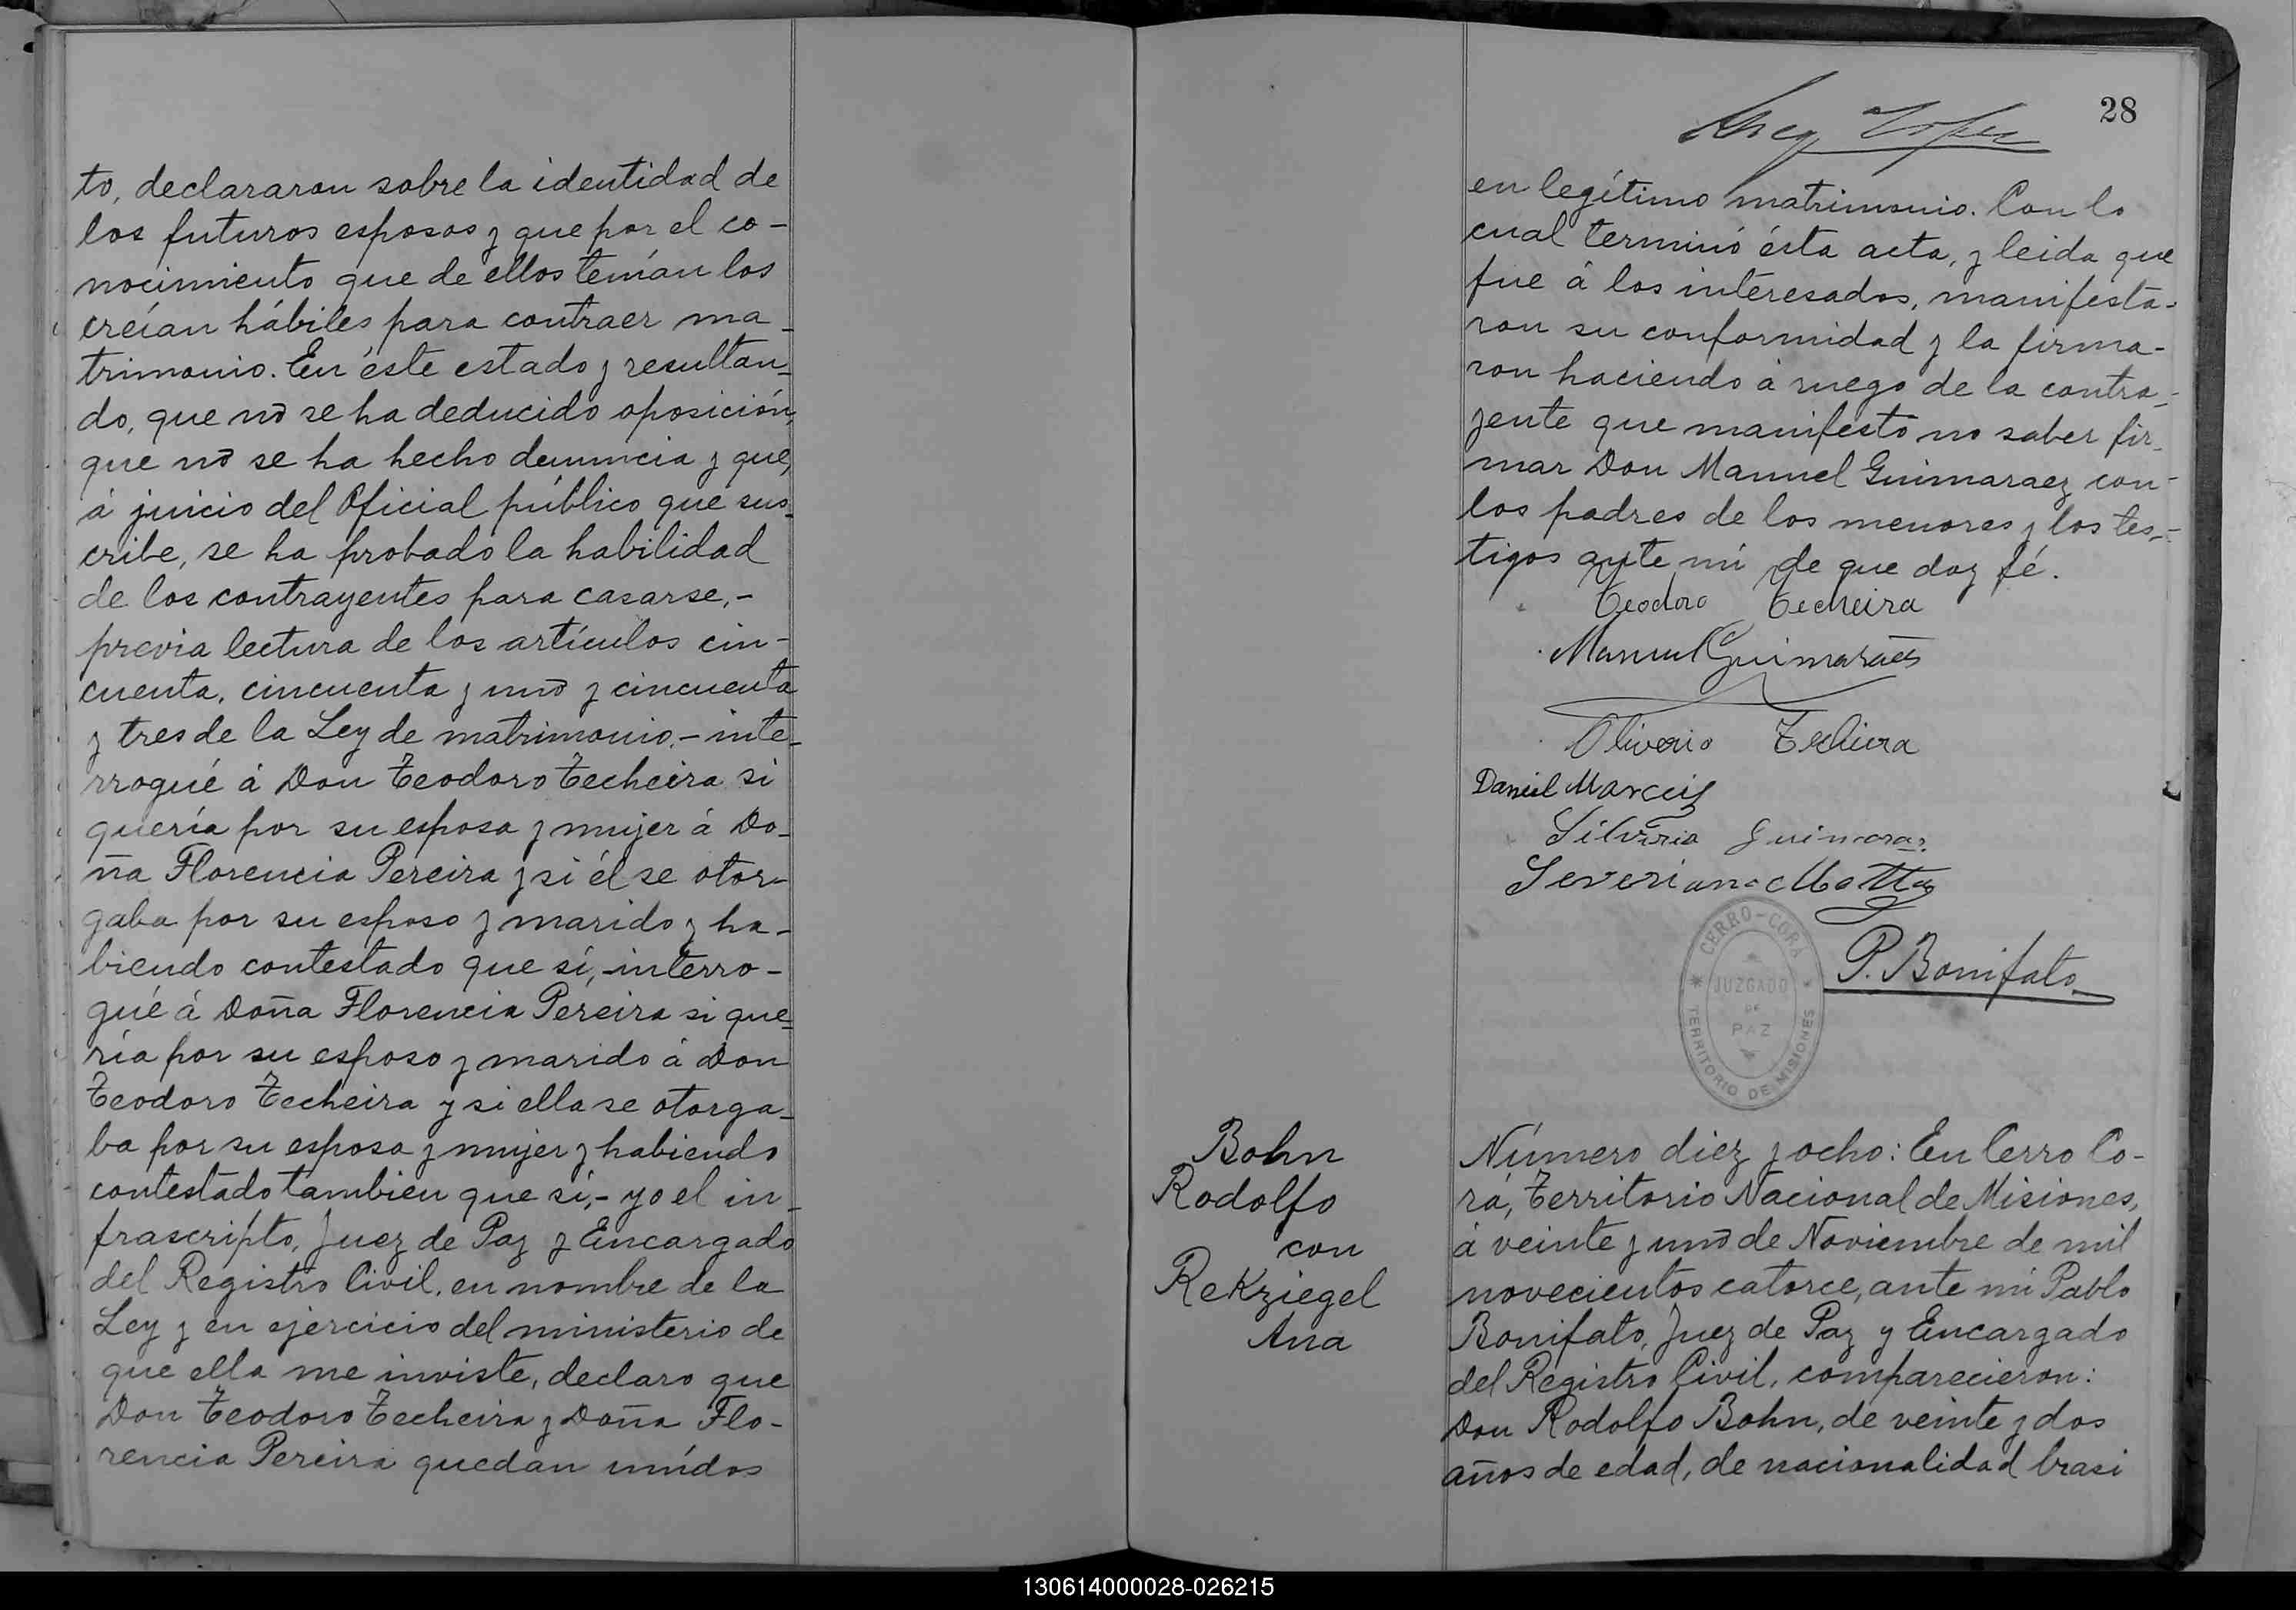 to, declararon sobre la identidad de
los futuros esposos y que por el co-
nocimiento que de ellos tenían los
creían hábiles para contraer ma-
trimonio. En éste estado y resultan-
do, que no se ha deducido oposición,
que no se ha hecho denuncia y que,
á juicio del Oficial público que sus-
cribe, se ha probado la habilidad
de los contrayentes para casarse,-
previa lectura de los artículos cin-
cuenta, cincuenta y uno y cincuenta
y tres de la Ley de matrimonio,- inte-
rrogué á Don Teodoro Techeira si
quería por su esposa y mujer á Do-
ña Florencia Pereira y si él se otor-
gaba por su esposo y marido y ha-
biendo contestado que sí,- interro-
gué á Doña Florencia Pereira si que-
ría por su esposo y marido á Don
Teodoro Techeira y si ella se otorga-
ba por su esposa y mujer y habiendo
contestado tambien que sí,- yo el in-
frascripto, Juez de Paz y Encargado
del Registro Civil, en nombre de la
Ley y en ejercicio del ministerio de
que ella me inviste, declaro que
Don Teodoro Techeira y Doña Flo-
rencia Pereira quedan unídos
28
en legítimo matrimonio. Con lo
cual terminó ésta acta, y leida que
fue á los interesados, manifesta-
ron su conformidad y la firma-
ron haciendo á ruego de la contra-
yente que manifestó no saber fir-
mar Don Manuel Guimaraez con-
los padres de los menores y los tes-
tigos ante mí de que doy fé.
Teodoro Techeira
Manuel Guimarães
Oliverio Techeira
Daniel
Silverio
Severiano Motta
CERRO-CORÁ
JUZGADO
DE
PAZ
TERRITORIO DE MISIONES
P. Bonifato
Bohn
Rodolfo
con
Rekziegel
Ana
Número diez y ocho: En Cerro Co-
rá, Territorio Nacional de Misiones,
á veinte y uno de Noviembre de mil
novecientos catorce, ante mí Pablo
Bonifato, Juez de Paz y Encargado
del Registro Civil, comparecieron:
Don Rodolfo Bohn, de veinte y dos
años de edad, de nacionalidad brasi
130614000028-026215